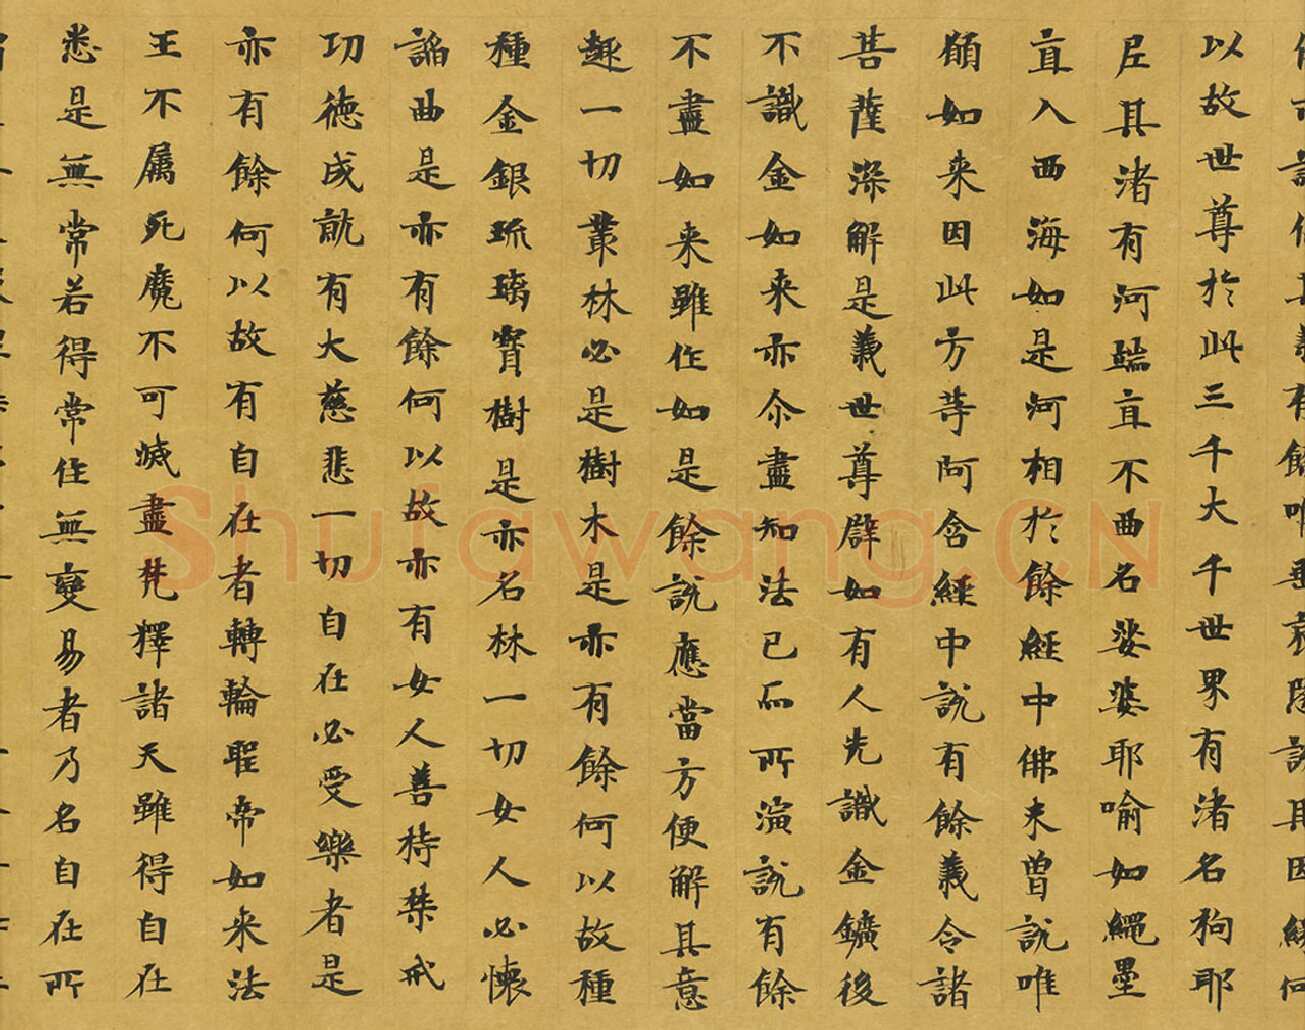 以故世尊於此三千大千世界有渚名狗耶
尼其渚有河端直不曲名娑婆耶喻如繩墨
直入西海如是河相於餘經中佛未曾說唯
願如来因此方等阿含經中說有餘義令諸
菩薩深解是義世尊辟如有人先識金鑛後
不識金如来亦尒盡知法已而所演說有餘
不盡如来雖作如是餘說應當方便解其意
趣一切叢林必是樹木是亦有餘何以故種
種金銀琉璃寶樹是亦名林一切女人必懷
諂曲是亦有餘何以故亦有女人善持禁戒
功德成就有大慈悲一切自在必受樂者是
亦有餘何以故有自在者轉輪聖帝如来法
王不屬死魔不可滅盡梵釋諸天雖得自在
悉是無常若得常住無變易者乃名自在所
Shufawang.CN